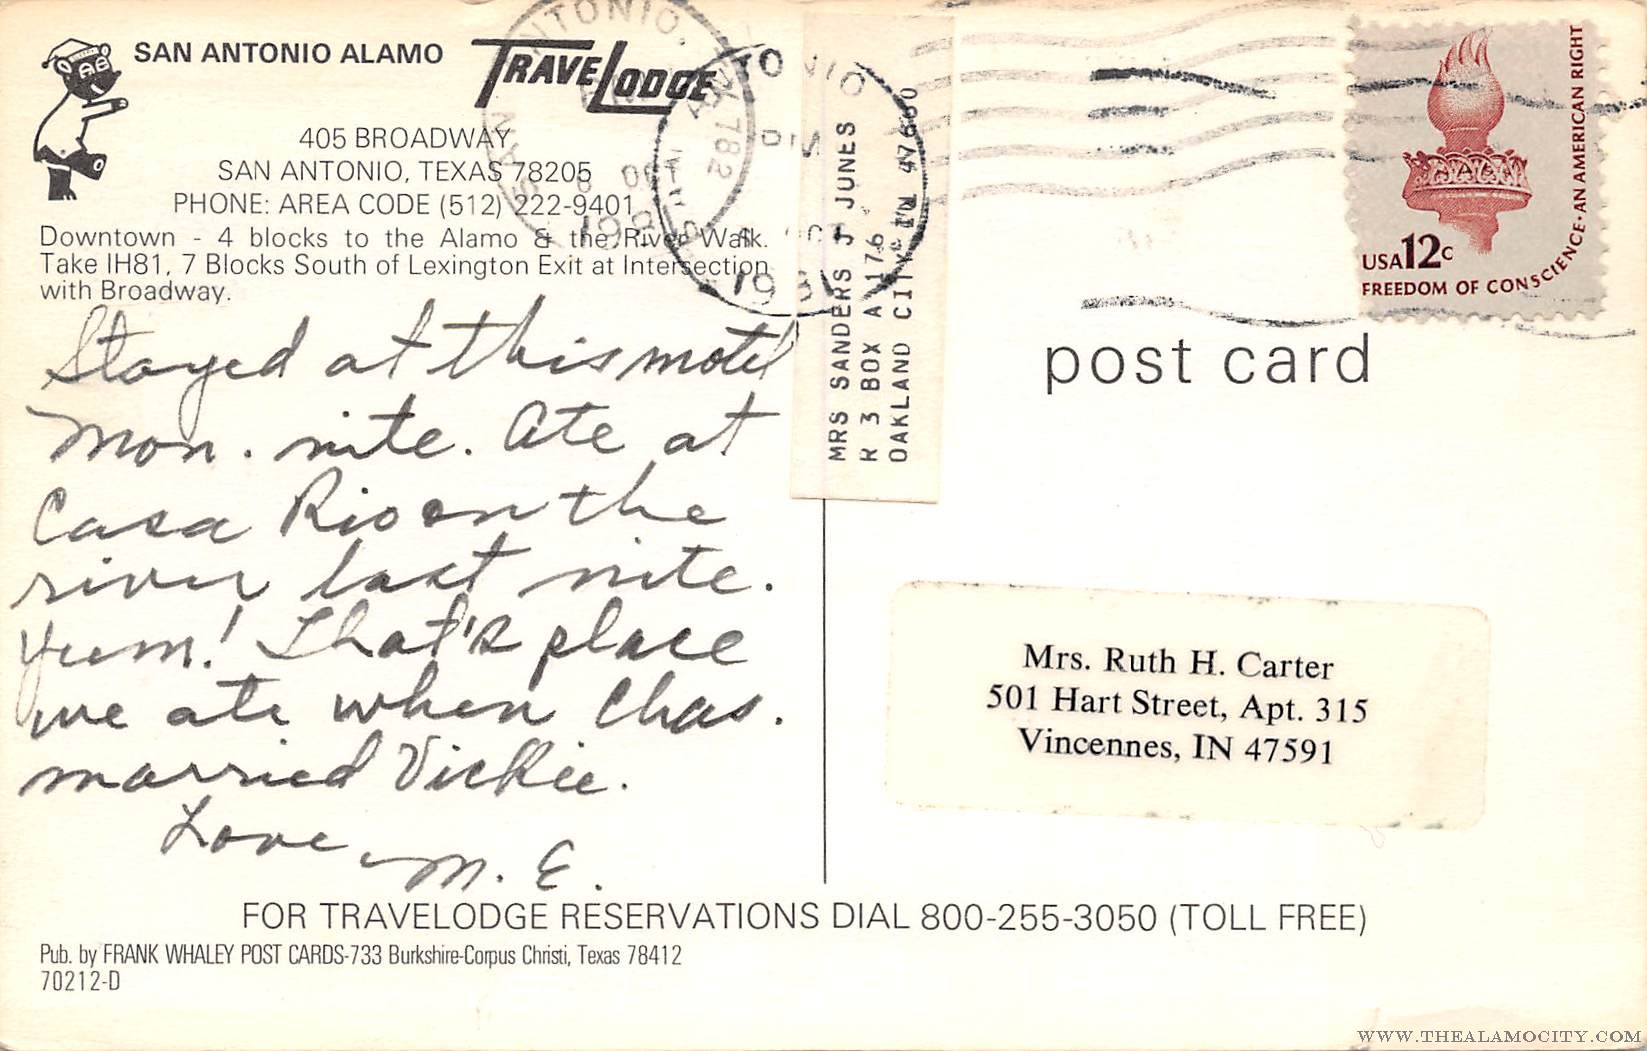 SAN ANTONIO ALAMO
TRAVELODGE
405 BROADWAY
SAN ANTONIO, TEXAS 78205
PHONE: AREA CODE (512) 222-9401
Downtown - 4 blocks to the Alamo & the River Walk.
Take IH81, 7 Blocks South of Lexington Exit at Intersection
with Broadway.
Stayed at this motel
Mon. nite. Ate at
Casa Rio on the
river last nite.
Yum! That's place
we ate when Chas.
married Vickie.
Love
M. E.
SAN ANTONIO, TX 782
OCT
1981
MRS SANDERS J JUNES
R 3 BOX A 176
OAKLAND CITY IN 47660
USA 12c
FREEDOM OF CONSCIENCE·AN AMERICAN RIGHT
post card
Mrs. Ruth H. Carter
501 Hart Street, Apt. 315
Vincennes, IN 47591
FOR TRAVELODGE RESERVATIONS DIAL 800-255-3050 (TOLL FREE)
Pub. by FRANK WHALEY POST CARDS-733 Burkshire-Corpus Christi, Texas 78412
70212-D
WWW.THEALAMOCITY.COM